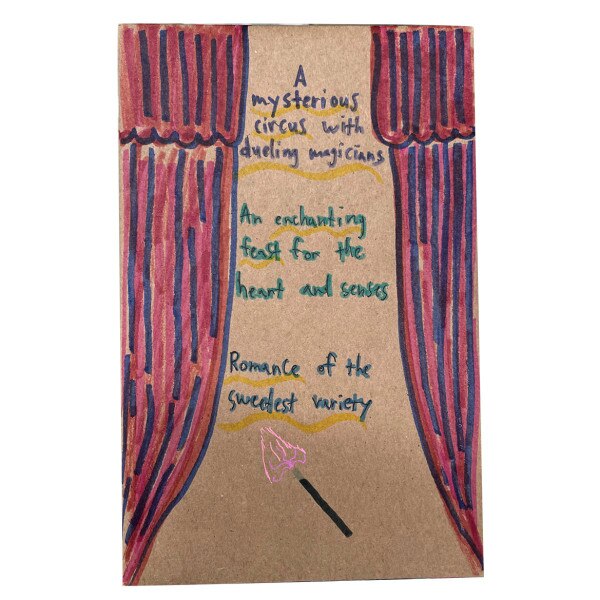 A
mysterious
circus with
dueling magicians
An enchanting
feast for the
heart and senses
Romance of the
sweetest variety